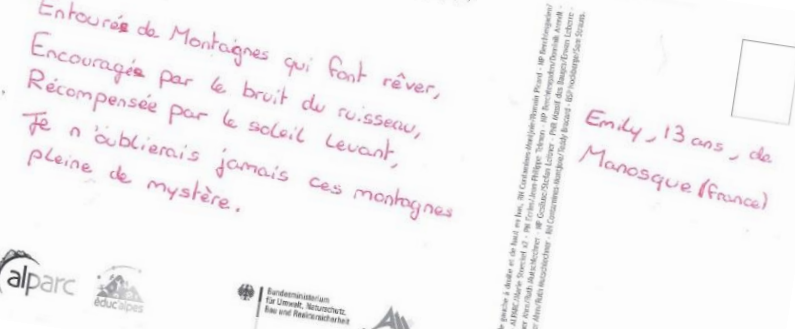 Entourée de Montaignes qui font rêver,
Encouragée par le bruit du ruisseau,
Récompensée par le soleil levant,
Je n'oublierais jamais ces montagnes
pleine de mystère.
Emily, 13 ans, de
Manosque (France)
alparc
éduc'alpes
Bundesministerium
für Umwelt, Naturschutz,
Bau und Reaktorsicherheit